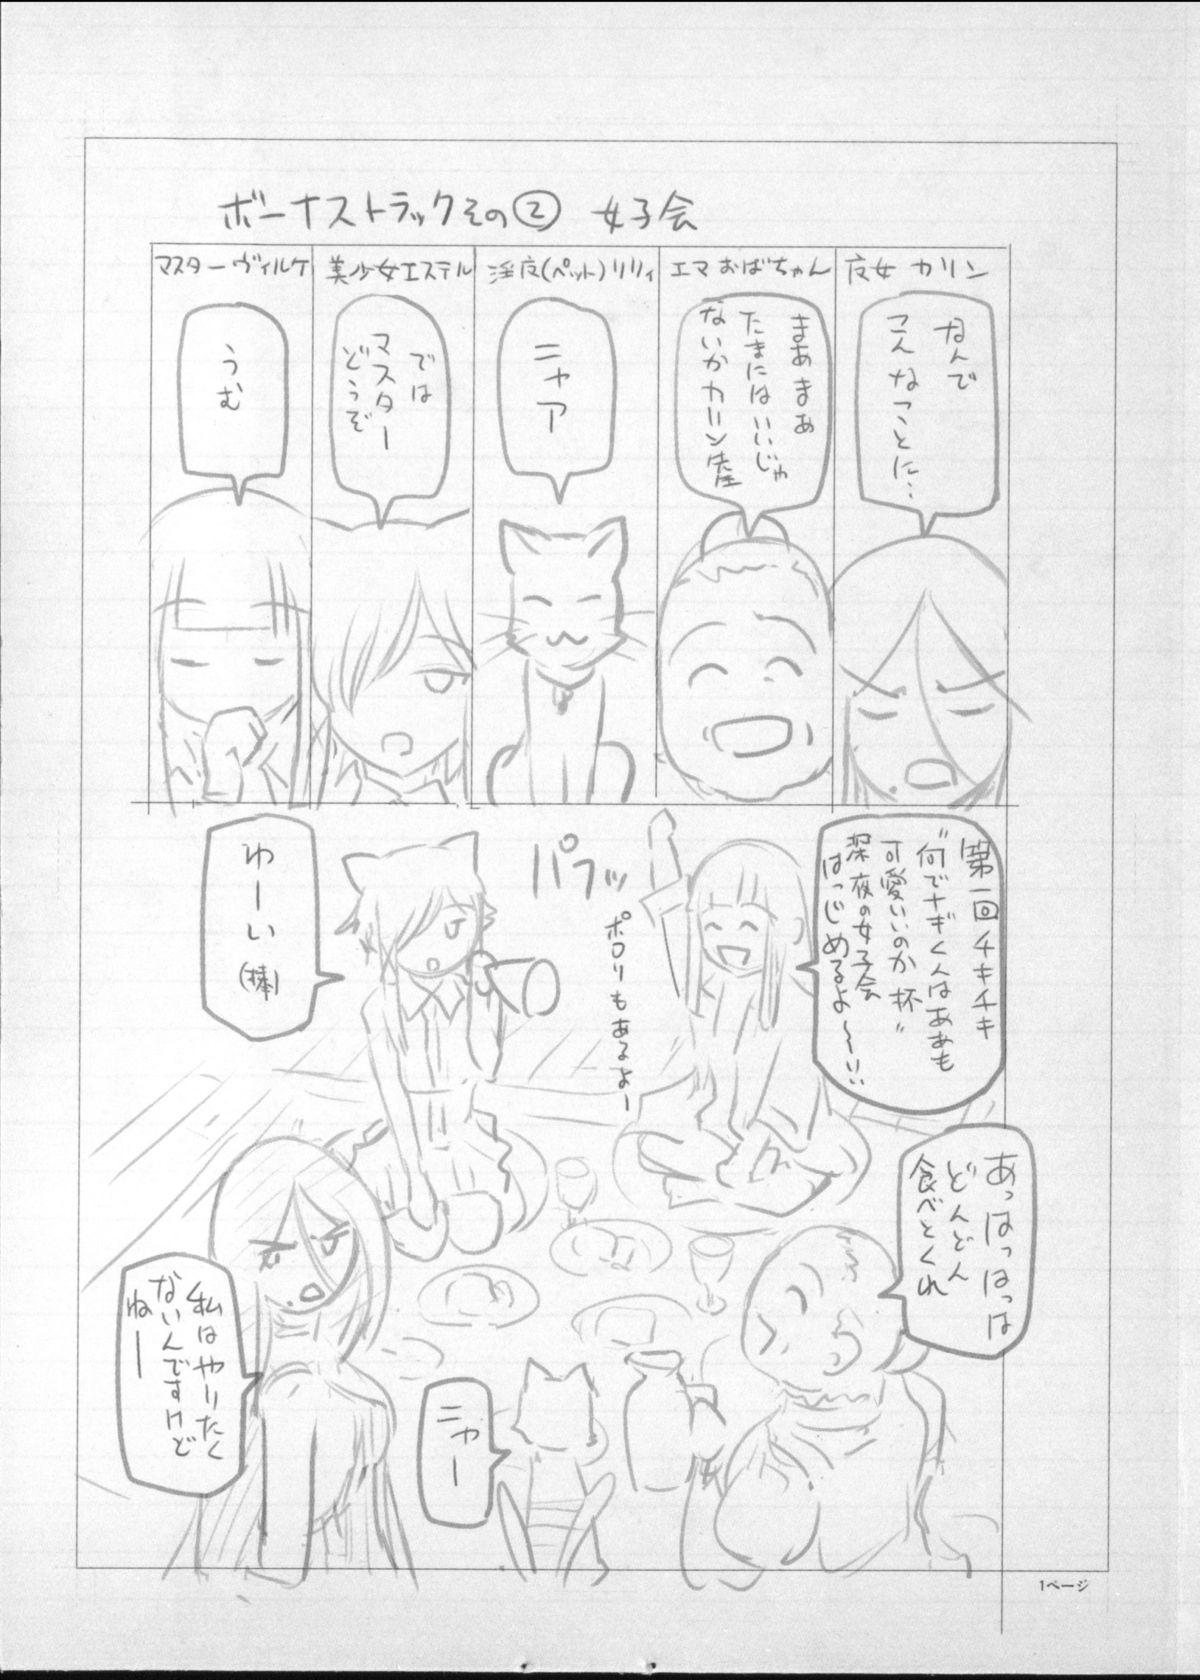 ボーナストラックその② 女子会
夜女 カリン
なんで
こんなことに…
エマおばちゃん
まあまあ
たまにはいいじゃ
ないかカリン
淫夜(ペット)リリィ
ニャア
美少女エステル
では
マスター
どうぞ
マスターヴィルケ
うむ
第一回チキチキ
"何でナギくんはああも
可愛いいのか杯"
深夜の女子会
はっじめるよ〜!!
パフッ
ポロリもあるよー
わーい
(棒)
あっはっはっは
どんどん
食べとくれ
私はやりたく
ないんですけど
ねー
ニャー
1ページ